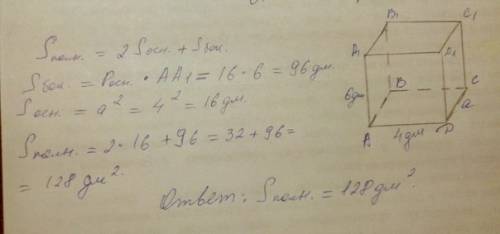 Sполн. = 2 Sосн. + Sбок.
Sбок. = Pосн. · AA1 = 16 · 6 = 96 дм.
Sосн. = a² = 4² = 16 дм.
Sполн. = 2 · 16 + 96 = 32 + 96 =
= 128 дм².
Ответ: Sполн. = 128 дм².
B1
C1
A1
D1
6дм
B
C
a
A
4дм
D